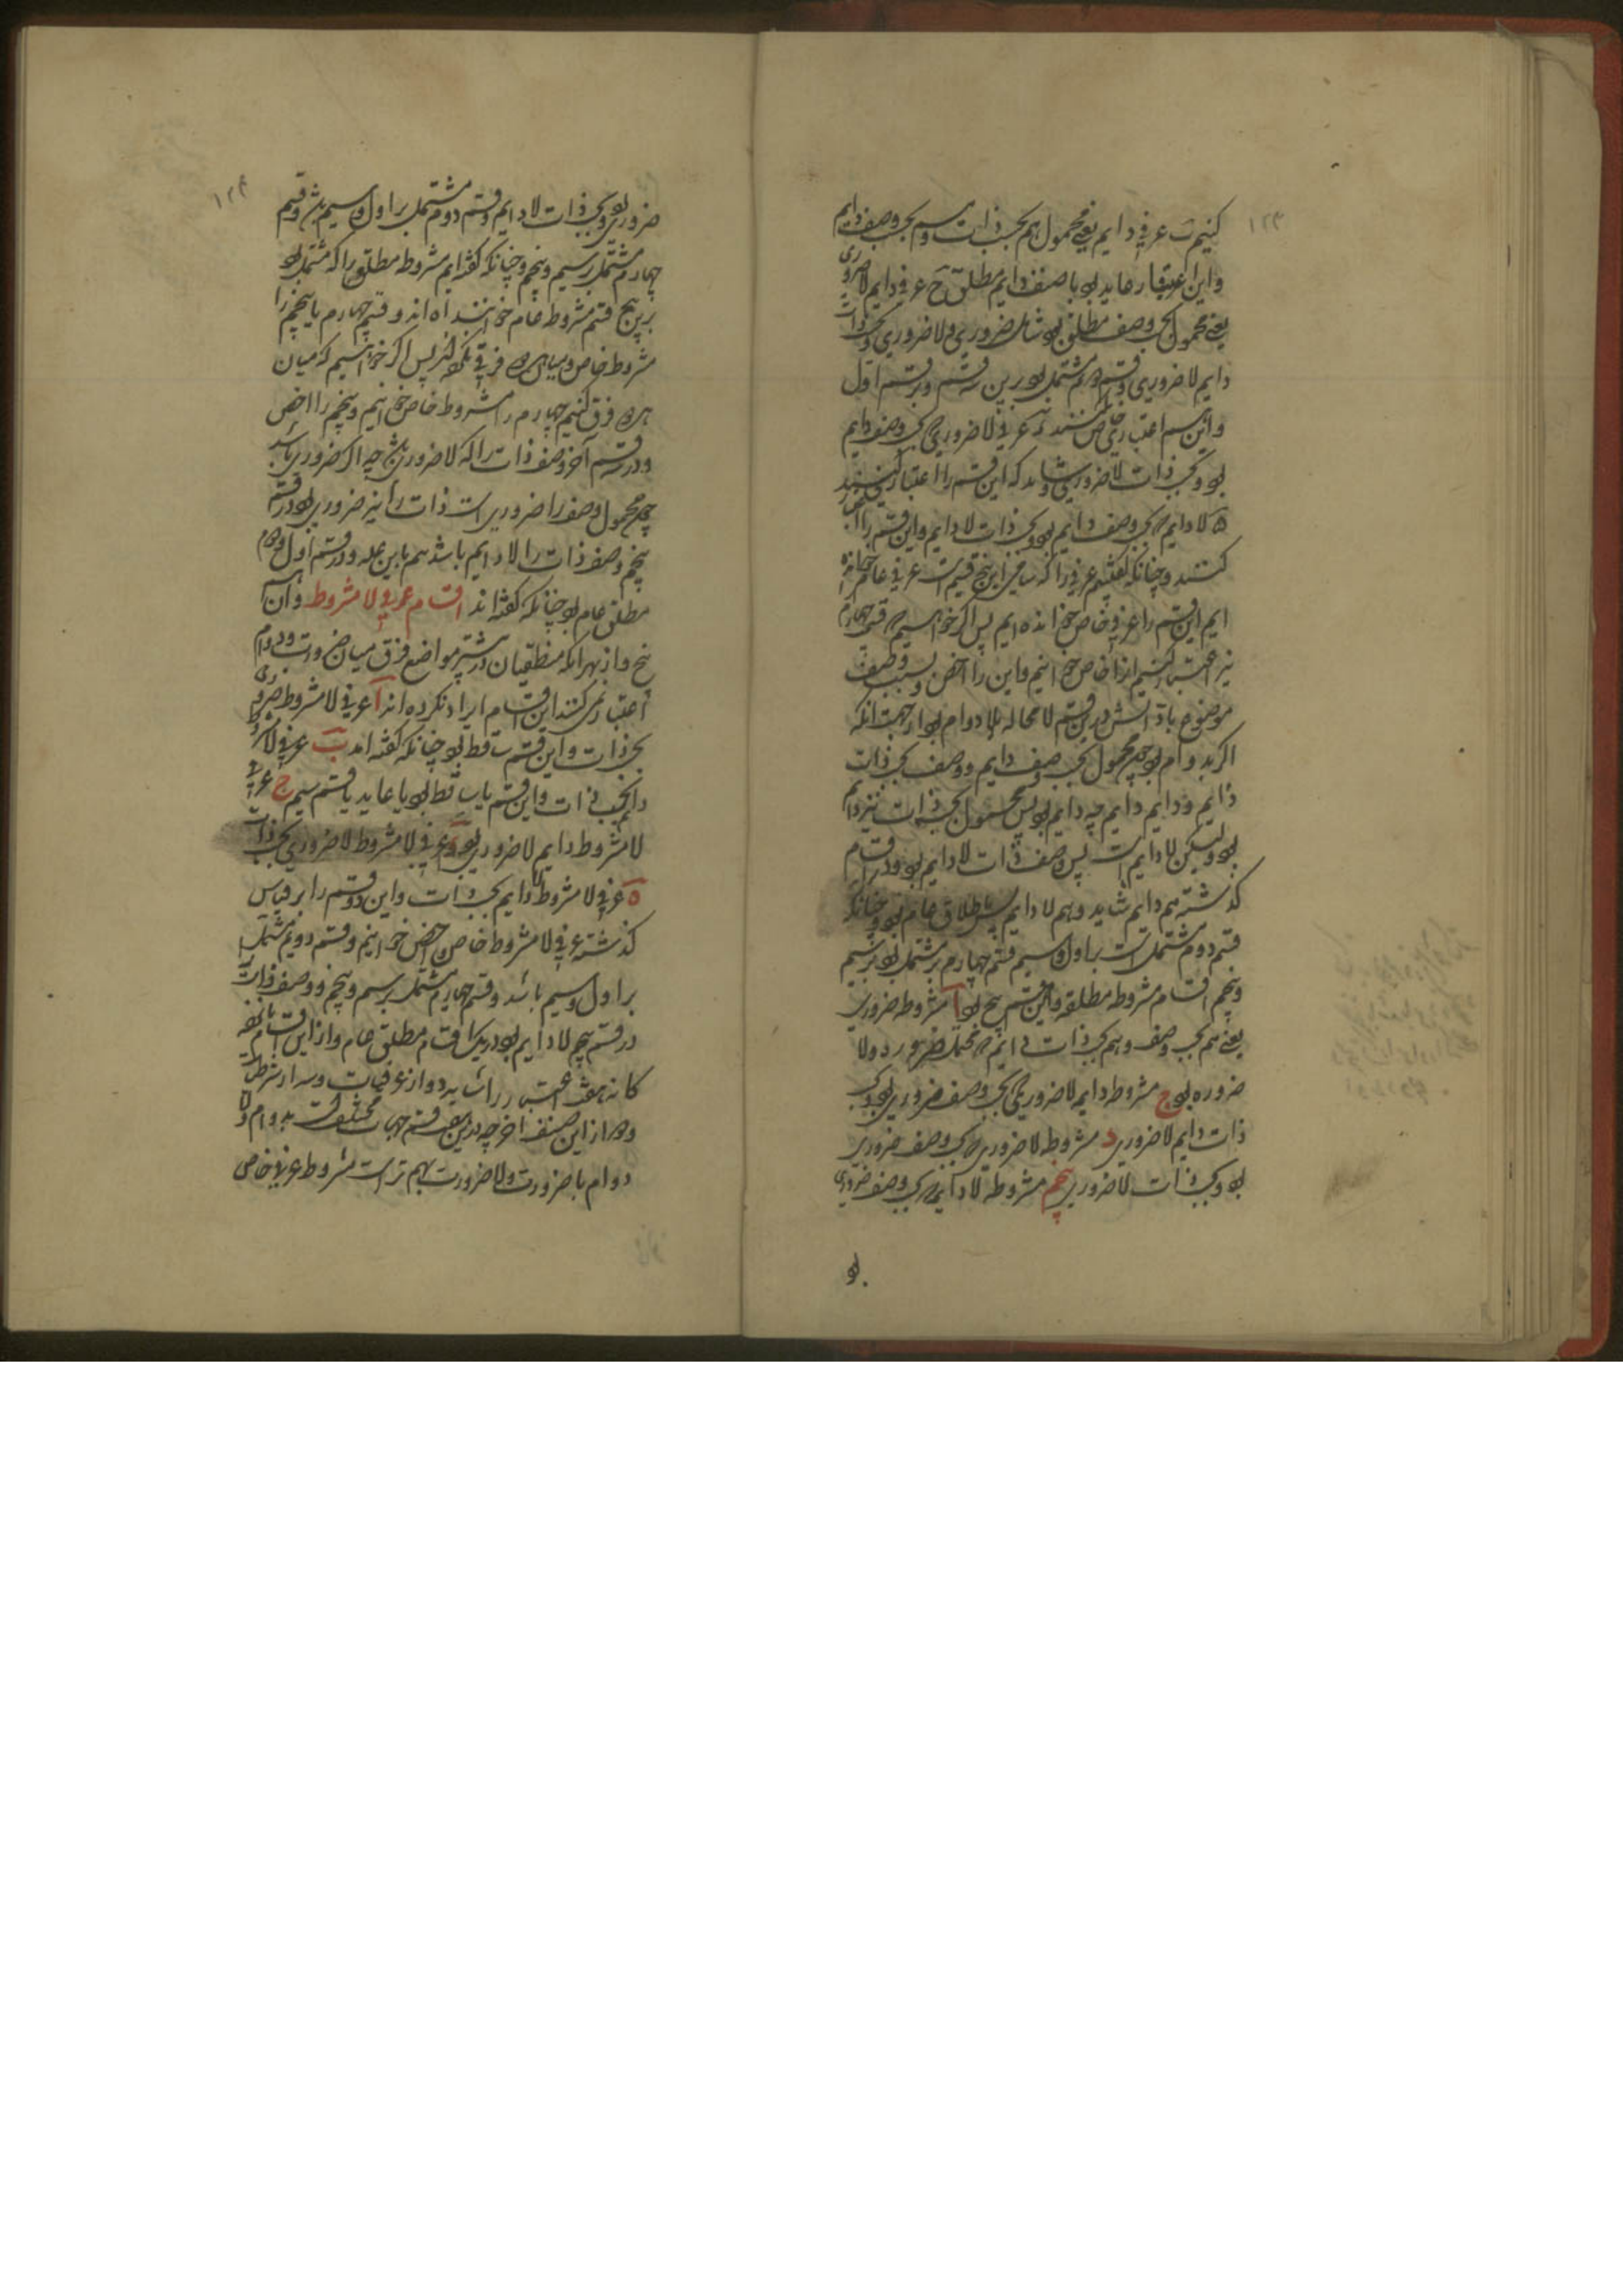 ۱۲۳
کنیم ب عرفی دایم یعنی محمول هم بحسب ذات و هم بحسب وصف دایم
و این اعتبار عاید بود با صنف دایم مطلق ج عرفی دایم لاضروری
یعنی محمول بحسب وصف مطلق بود شامل ضروری و لاضروری و بحسب ذات
دایم لاضروری و قسم دوم مشتمل بود برین سه قسم و بر قسم اول
و این سه اعتبار خاص کنند د عرفی لاضروری بحسب وصف دایم
بود و بحسب ذات لاضروری و شاید که این قسم را اعتبار نکنند
ه لادایم بحسب وصف دایم بود و بحسب ذات لادایم و این قسم را اعتبار
کنند و چنانکه گفتیم عرفی را که شامل این پنج قسم است عرفی عام خوانده
ایم این قسم را عرفی خاص خوانده ایم پس اگر خواهیم که قسم چهارم
نیز اعتبار کنیم آنرا خاص خوانیم و این را اخص و نسبت وصف
موضوع با ذاتش درین قسم لامحاله بلادوام بود از جهت آنکه
اگر بدوام بود چون محمول بحسب وصف دایم و وصف بحسب ذات
دایم و دایم دایم چه دایم بود پس محمول بحسب ذات نیز دایم
بود و لیکن لادایم است پس وصف ذات لادایم بود و در اقسام
گذشته هم دایم شاید و هم لادایم پس باطلاق عام بود و چنانکه
قسم دوم مشتمل است بر اول و سیم قسم چهارم مشتمل بود بر سیم
و پنجم اقسام مشروطه مطلقه و این قسم پنج بود آ مشروطه ضروری
یعنی هم بحسب وصف و هم بحسب ذات دایم محتمل ضرورة و لا
ضروره بود ج مشروطه دایمه لاضروری بحسب وصف ضروری بود و بحسب
ذات دایم لاضروری د مشروطه لاضروری بحسب وصف ضروری
بود و بحسب ذات لاضروری پنجم مشروطه لادایم بحسب وصف ضروری
بود
۱۲۴
ضروری بود و بحسب ذات لادایم و قسم دوم مشتمل بر اول و سیم باشد و قسم
چهارم مشتمل بر سیم و پنجم و چنانکه گفته ایم مشروط مطلق را که مشتمل بود
بر پنج قسم مشروط عام خوانند اند و قسم چهارم یا پنجم را
مشروط خاص و میان هر دو فرق نکنند پس اگر خواهیم که میان
هر دو فرق کنیم چهارم را مشروط خاص خوانیم و پنجم را اخص
و در قسم آخر وصف ذات را که لاضروری باشد چه اگر ضروری باشد
چون محمول وصف را ضروری است ذات را نیز ضروری بود و در قسم
پنجم وصف ذات را لادایم باشد هم باین علت و در قسم اول و دوم
مطلق عام بود چنانکه گفته اند اقسام عرفی لامشروط و آن هم
پنج و از بهر آنکه منطقیان در بیشتر مواضع فرق میان ضرورت و دوام
اعتبار نمی کنند این اقسام ایراد نکرده اند آ عرفی لامشروط ضروری
بحسب ذات و این قسم ساقط بود چنانکه گفته آمد ب عرفی لامشروط
دایم بحسب ذات و این قسم یا ساقط بود یا عاید با قسم سیم ج عرفی
لامشروط دایم لاضروری بود د عرفی لامشروط لاضروری بحسب ذات
ه عرفی لامشروط لادایم بحسب ذات و این دو قسم را بر قیاس
گذشته عرفی لامشروط خاص و اخص خوانیم و قسم دویم مشتمل
بر اول و سیم باشد و قسم چهارم مشتمل بر سیم و پنجم و وصف ذات
در قسم پنجم لادایم بود و در دیگر اقسام مطلق عام و از این اقسام پانزده
کانه هفت اعتبار را شاید دو از عرفیات و سه از مشروطات
و دو از این صنف آخر چه درین هفت قسم جهات مختلف است بدوام و لا
دوام یا ضرورت و لاضرورت و مهم تر است مشروط عرفی خاص